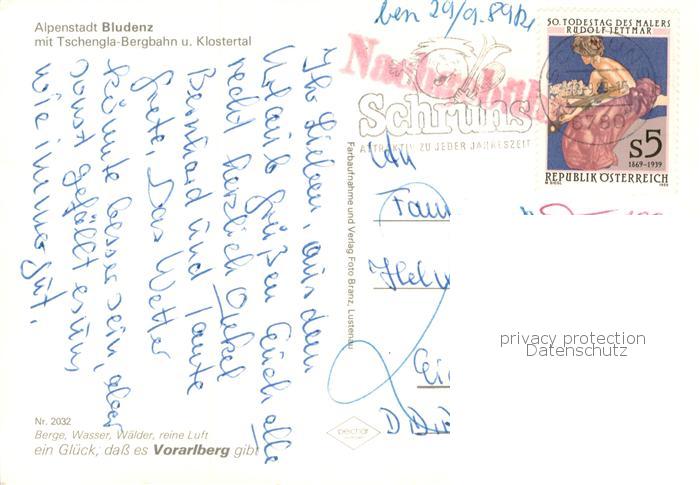 Alpenstadt Bludenz
mit Tschengla-Bergbahn u. Klostertal
Ihr Lieben, aus dem
Urlaub grüßen Euch alle
recht herzlich Onkel
Bernhard und Tante
Grete. Das Wetter
könnte besser sein, aber
sonst gefällt es uns
wie immer gut.
Nr. 2032
Berge, Wasser, Wälder, reine Luft
ein Glück, daß es Vorarlberg gibt
Farbaufnahme und Verlag Foto Branz, Lustenau
29/9.89
Schruns
ATTRAKTIV ZU JEDER JAHRESZEIT
50. TODESTAG DES MALERS
RUDOLF JETTMAR
S5
1869-1939
REPUBLIK ÖSTERREICH
An
Fam
Helm
D
privacy protection
Datenschutz